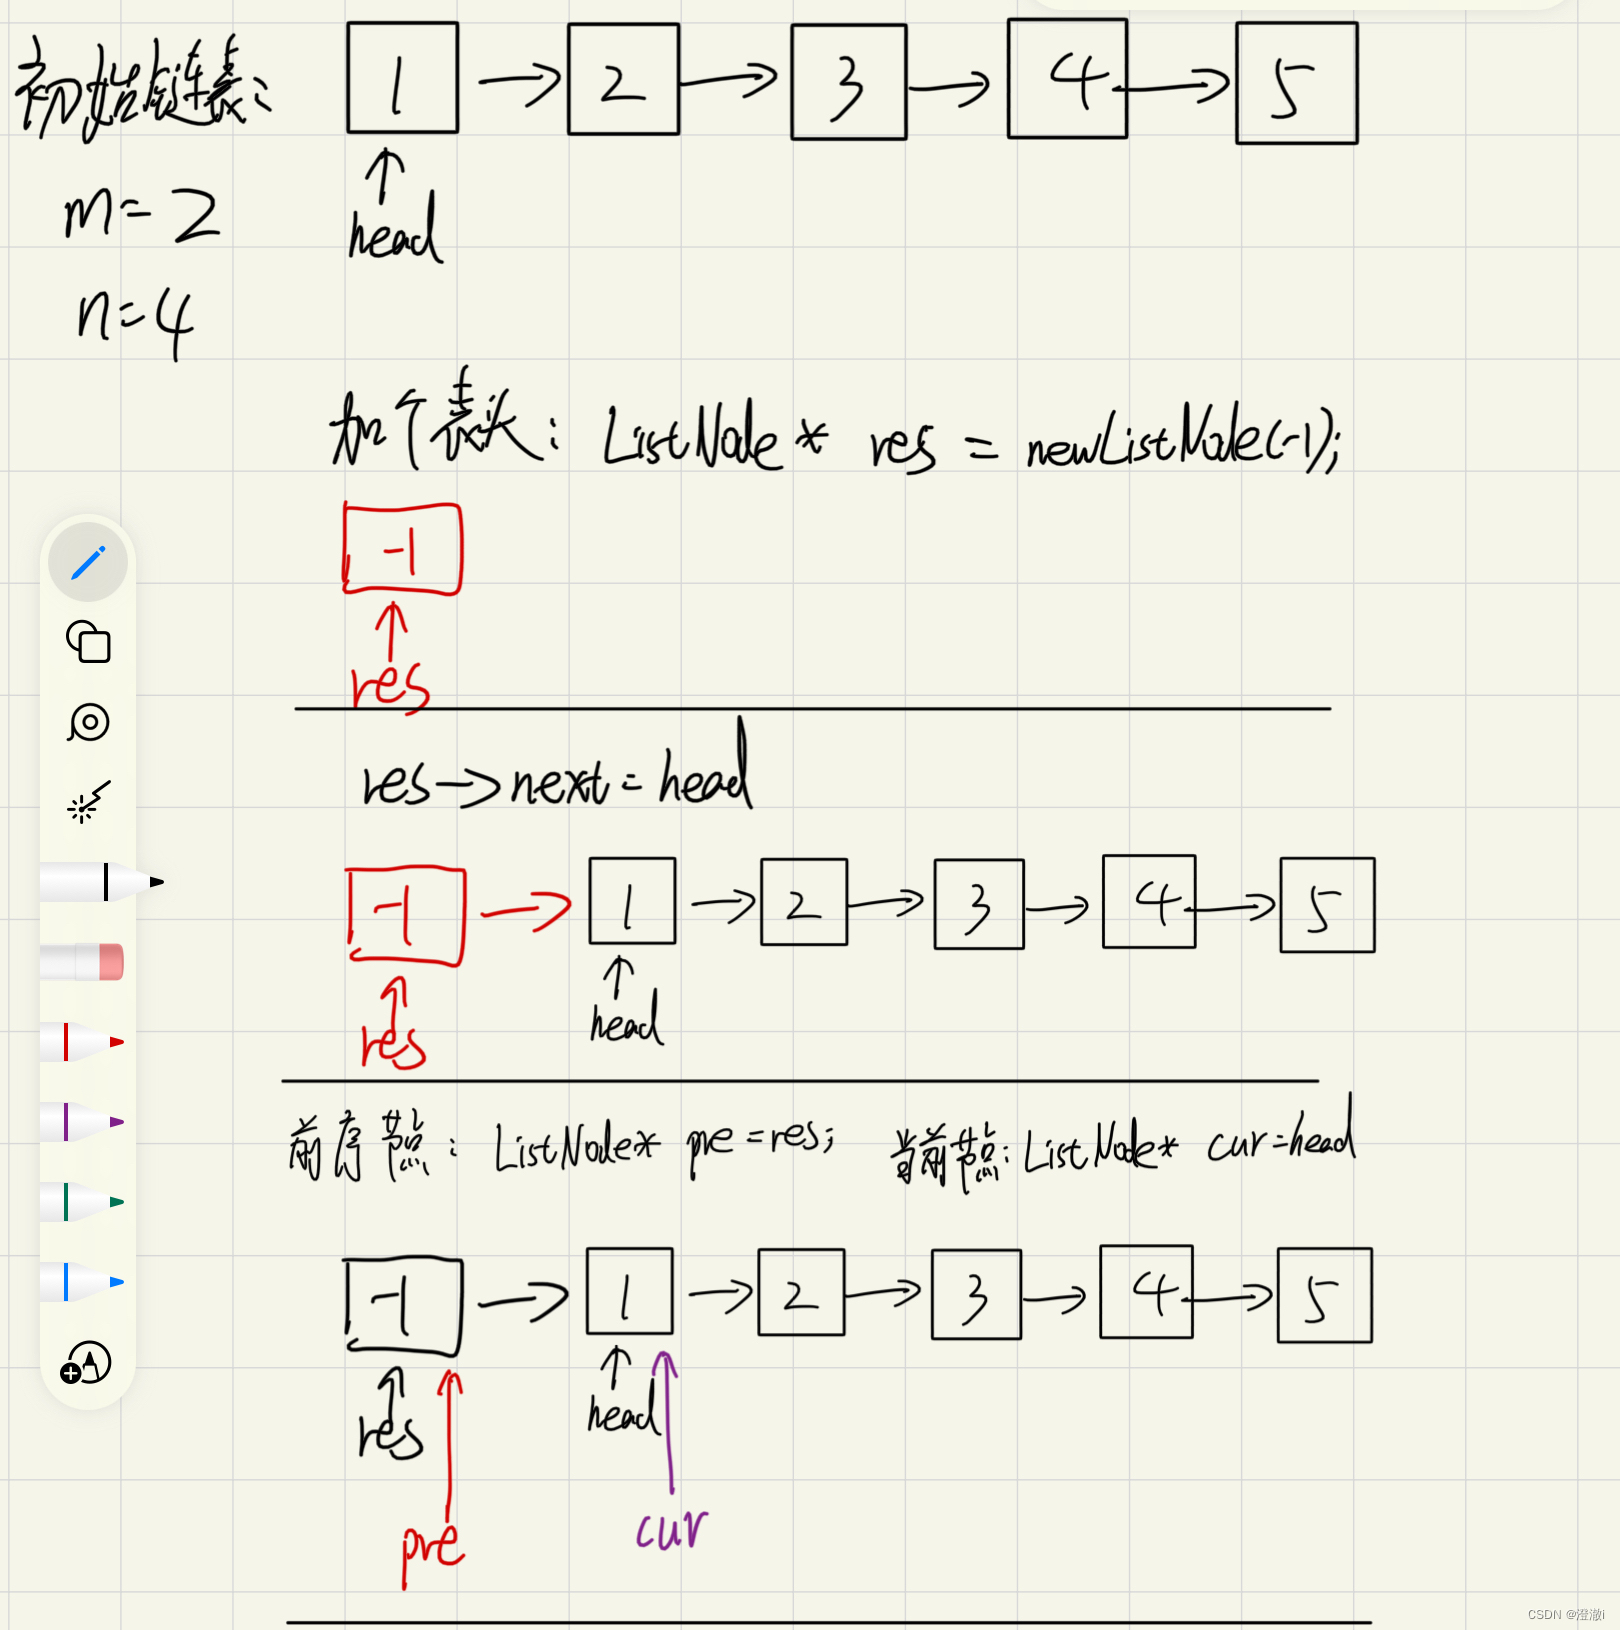 初始链表: 1 → 2 → 3 → 4 → 5
↑
head
m=2
n=4
加个表头: ListNode* res = newListNode(-1);
-1
↑
res
res→next=head
-1 → 1 → 2 → 3 → 4 → 5
↑ ↑
res head
前序节点: ListNode* pre=res; 当前节点: ListNode* cur=head
-1 → 1 → 2 → 3 → 4 → 5
↑ ↑ ↑ ↑
res head
pre cur
CSDN @澄澈i